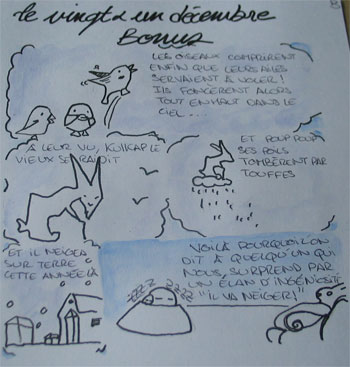 le vingt & un décembre
Bonus
LES OISEAUX COMPRIRENT
ENFIN QUE LEURS AILES
SERVAIENT A VOLER!
ILS FONCÈRENT ALORS
TOUT EN HAUT DANS LE
CIEL...
A LEUR VU, KUIKAP LE
VIEUX SE RAIDIT
ET POUP POUP
SES POILS
TOMBÈRENT PAR
TOUFFES
ET IL NEIGEA
SUR TERRE
CETTE ANNÉE LÀ
VOILÀ POURQUOI L'ON
DIT A QUELQU'UN QUI
NOUS SURPREND PAR
UN ÉLAN D'INGÉNIOSITÉ
"IL VA NEIGER!"